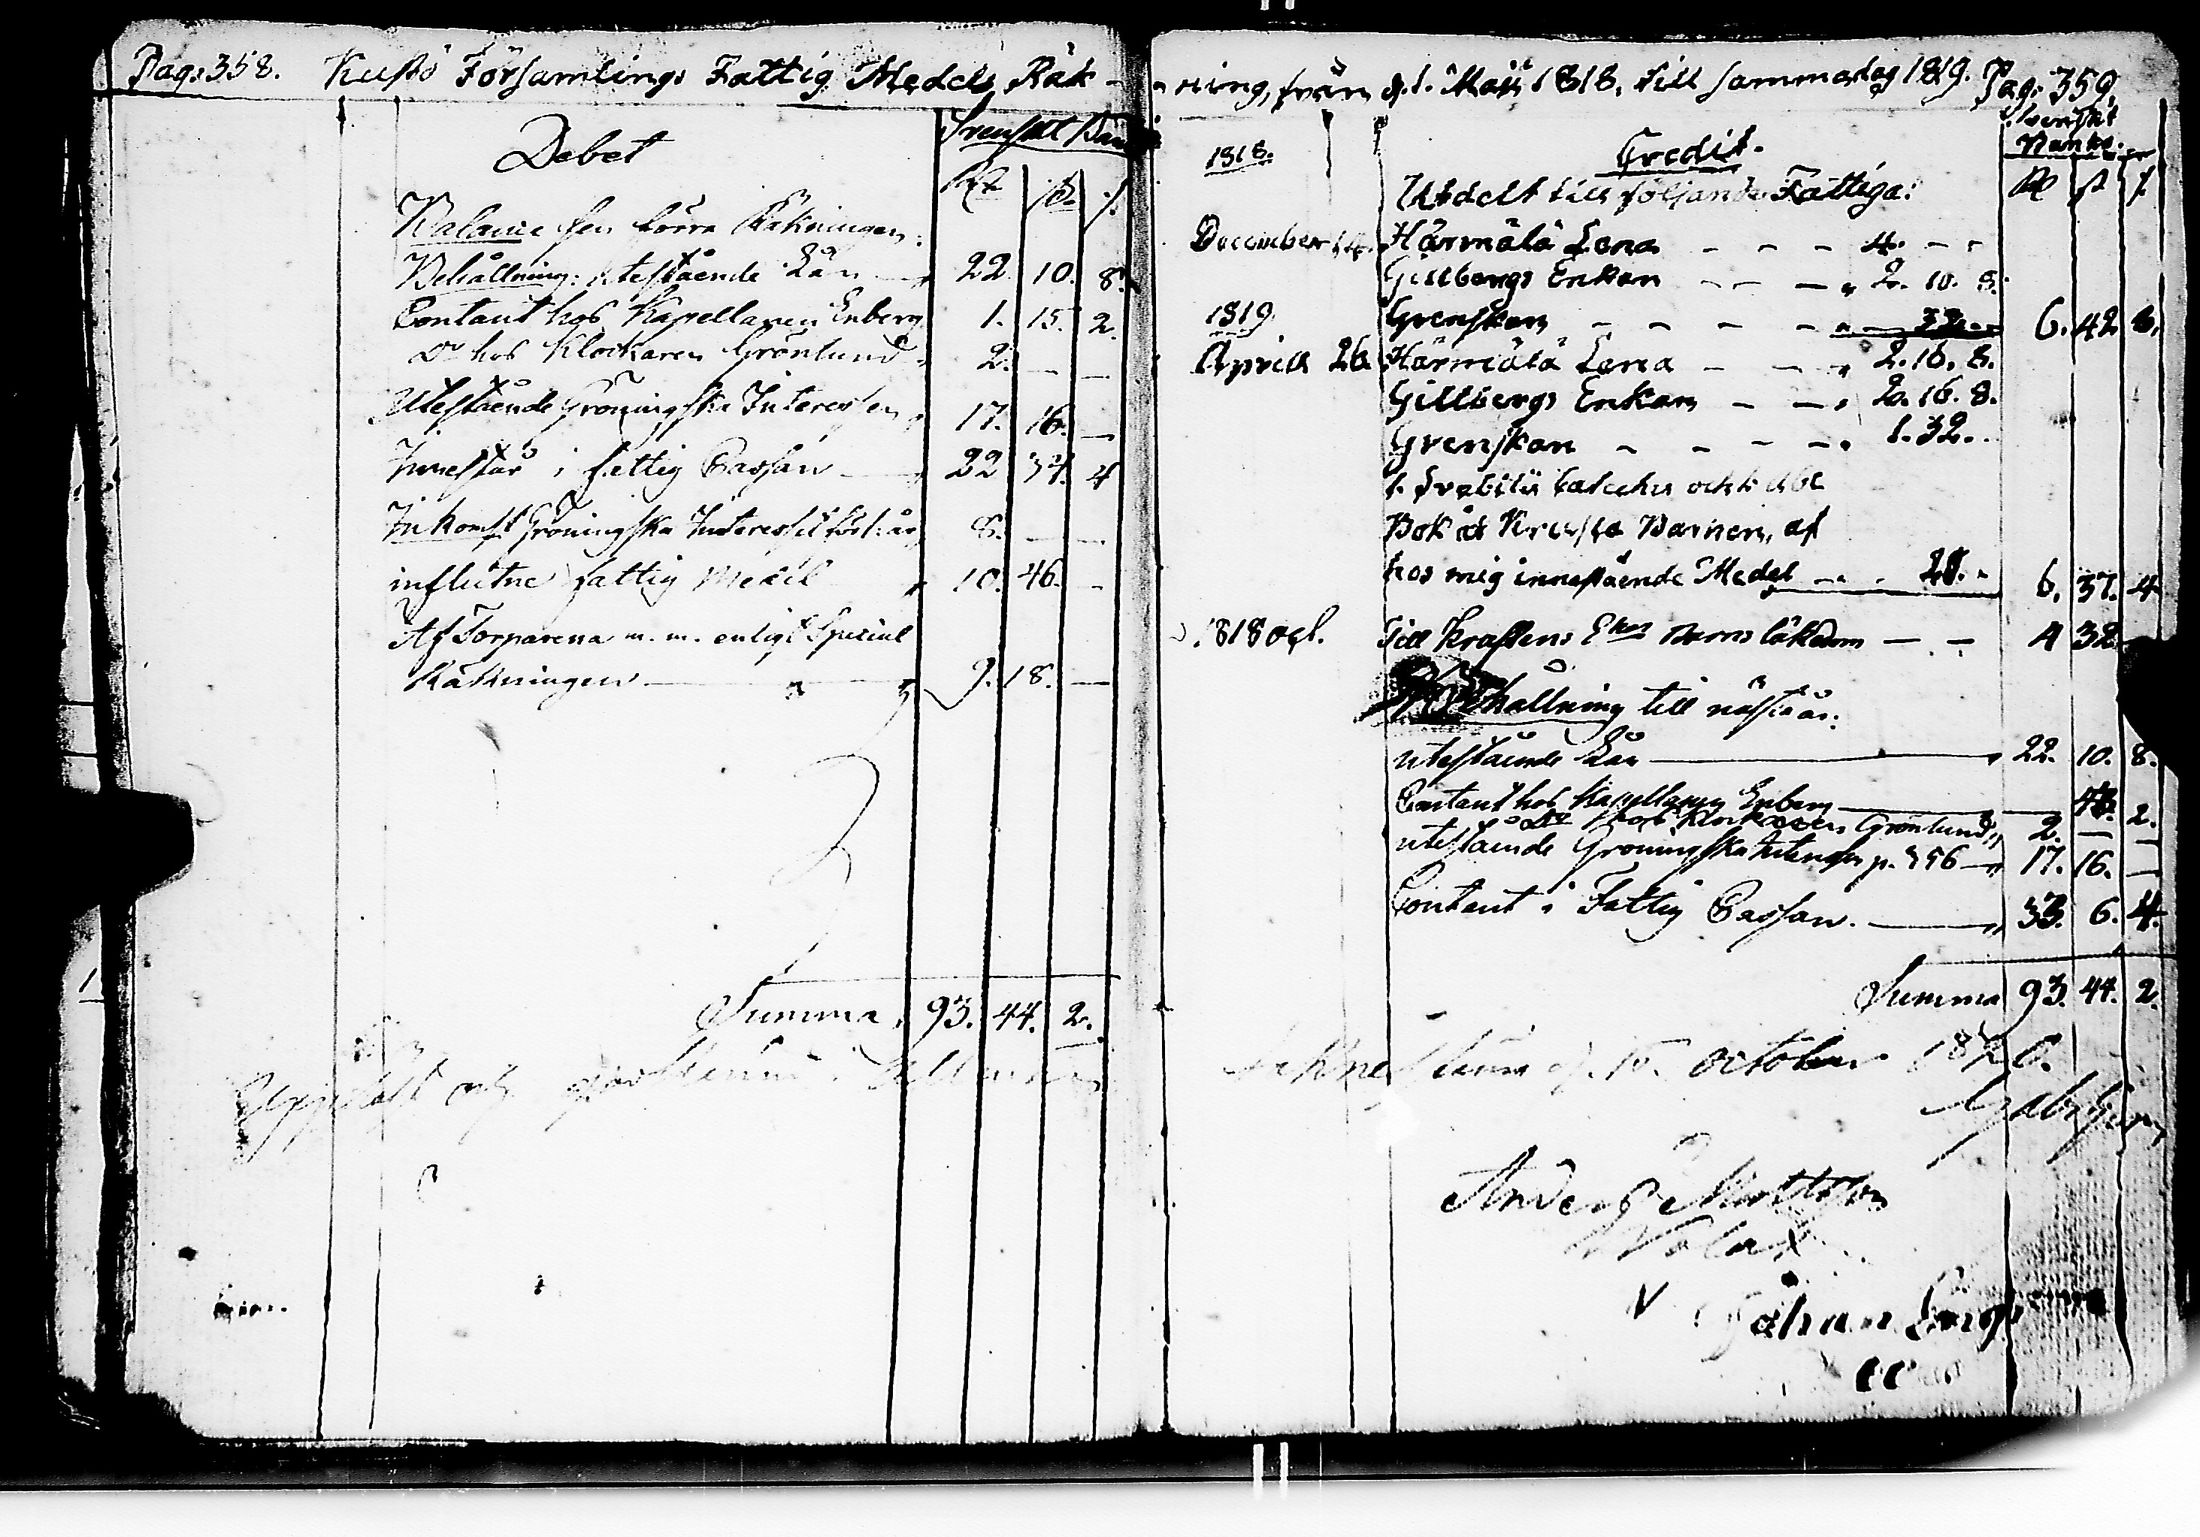 Pag. 358. Kustö Församlings Fattig Medels Räk-
Debet
Svenskt Banco
Rd ß r.
Balance fen förra Räkningen:
Behållning: utestående Lån 22. 10. 8.
Contant hos Kapellanen Enberg 1. 15. 2.
Do hos Klockaren Grönlund 2. — —
Utestående Gröningska Interessen 17. 16. —
Innestår i fattig Cassan 22 37. 4
Inkomst Gröningska Interesse för 1. år 8. — —
influtne fattig Medel 10. 46. -
Af Torparena m. m. enligt Special
Räkningen 9. 18. —
Summa, 93. 44. 2.
ning, från d. 1. Maii 1818, till samma dag 1819. Pag. 359.
Svenskt
Banko.
1818. Credit. Rd ß r
Utdelt till följande Fattiga:
December 14. Härmälä Lena - - - 4. - -
Gillbergs Enkan - - - 2. 10. 8.
1819 Grenskan - - - - 32. - 6. 42. 8.
Aprill 26 Härmälä Lena - - - 2. 16. 8.
Gillbergs Enkan - - 2. 16. 8.
Grenskan - - - - 1. 32.
1. Svebilii Cateches och 1. Abc
Bok åt Barnen, af
hos mig innestående Medel - - - 20. - 6. 37. 4
1818 Oct. Till Enkas Barns läkedom - - 4 32
Behållning till nästa år:
utestående Lån 22. 10. 8.
Contant hos Kapellanen Enberg 43. 2.
Do hos Klockaren Grönlund 2. — —
utestående Gröningska Interessen p. 356 17. 16. —
Contant i Fattig Cassan. 33. 6. 4.
Summa 93. 44. 2.
Uppläst och
d. 15. October 1820.
Anders Mattsson
Johan